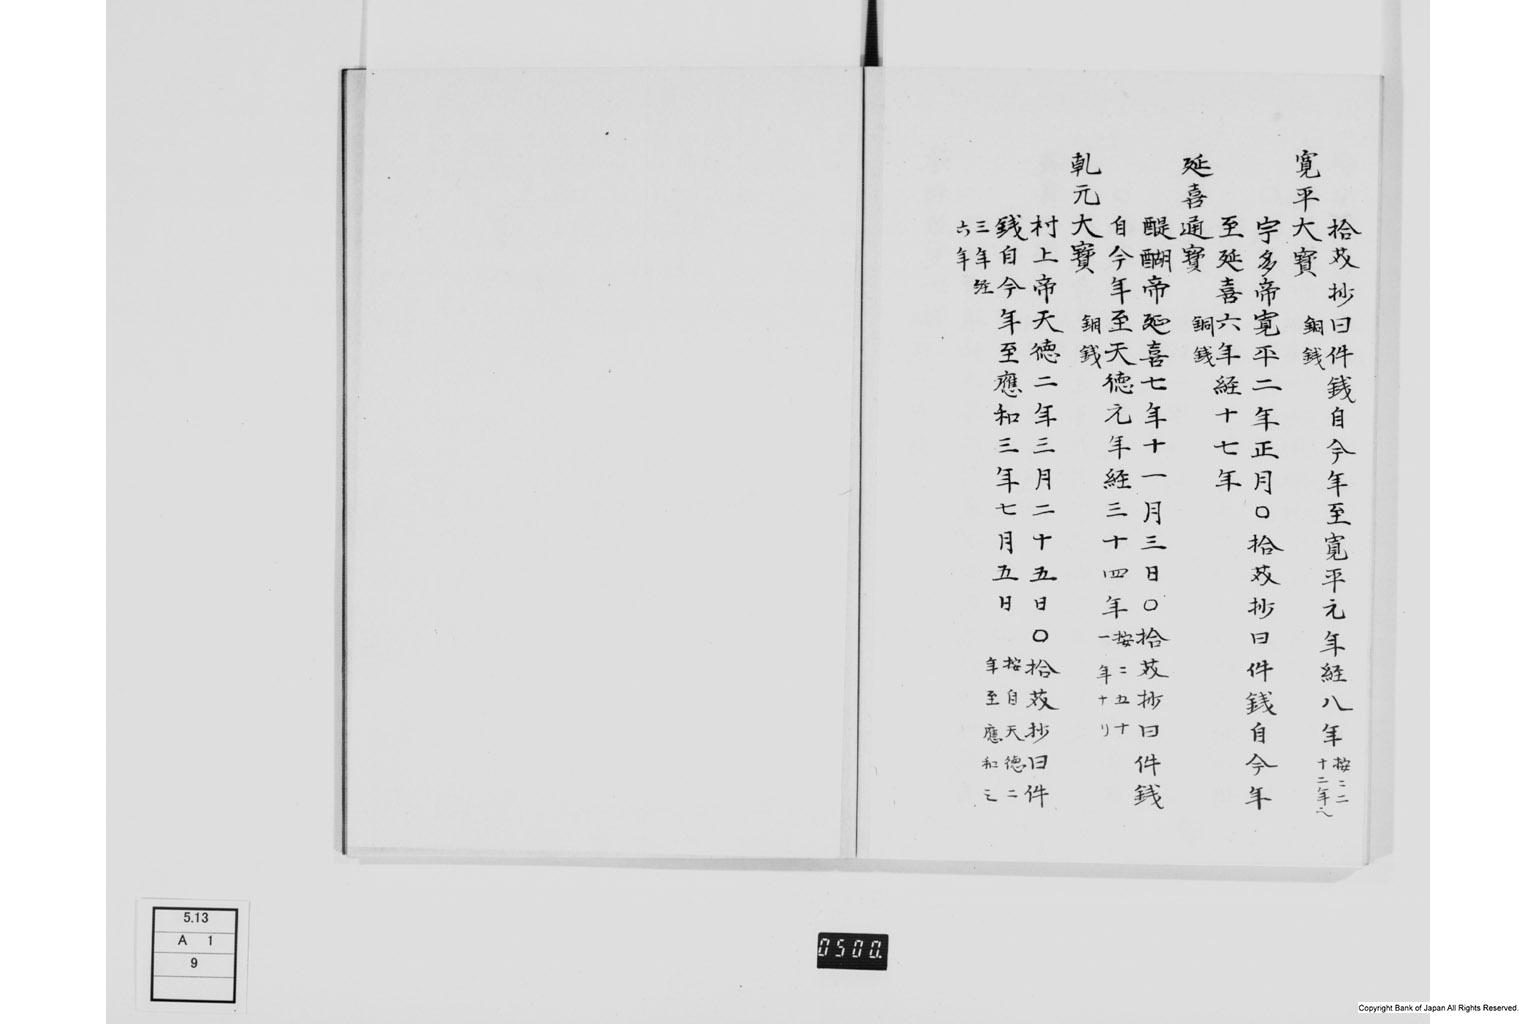 拾芥抄曰件銭自今年至寛平元年経八年 按ニ二十二年ヘ
寛平大寶 銅銭
宇多帝寛平二年正月〇拾芥抄曰件銭自今年
至延喜六年経十七年
延喜通寶 銅銭
醍醐帝延喜七年十一月三日〇拾芥抄曰件銭
自今年至天徳元年経三十四年 按ニ五十一年ナリ
乹元大寶 銅銭
村上帝天徳二年三月二十五日〇拾芥抄曰件
銭自今年至應和三年七月五日 按自天徳二年至應和三
三年経六年
5.13
A 1
9
0500.
Copyright Bank of Japan All Rights Reserved.